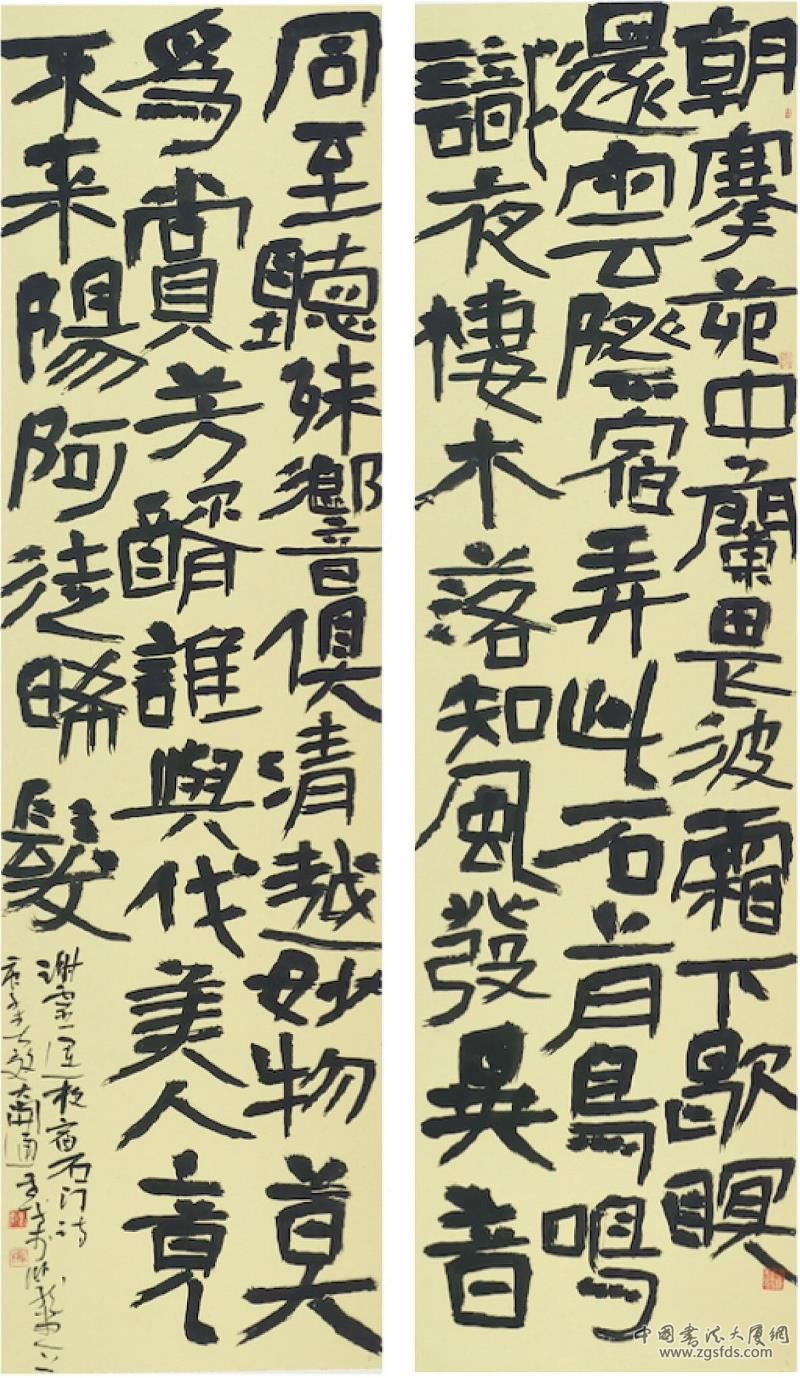 朝搴苑中蘭畏彼霜下歇暝
還雲際宿弄此石上月鳥鳴
識夜棲木落知風發異音
同至聽殊響俱清越妙物莫
爲賞芳醑誰與伐美人竟
不来陽阿徒晞髮
谢靈運夜宿石门诗
庚子
中国书法大厦網
www.zgsfds.com